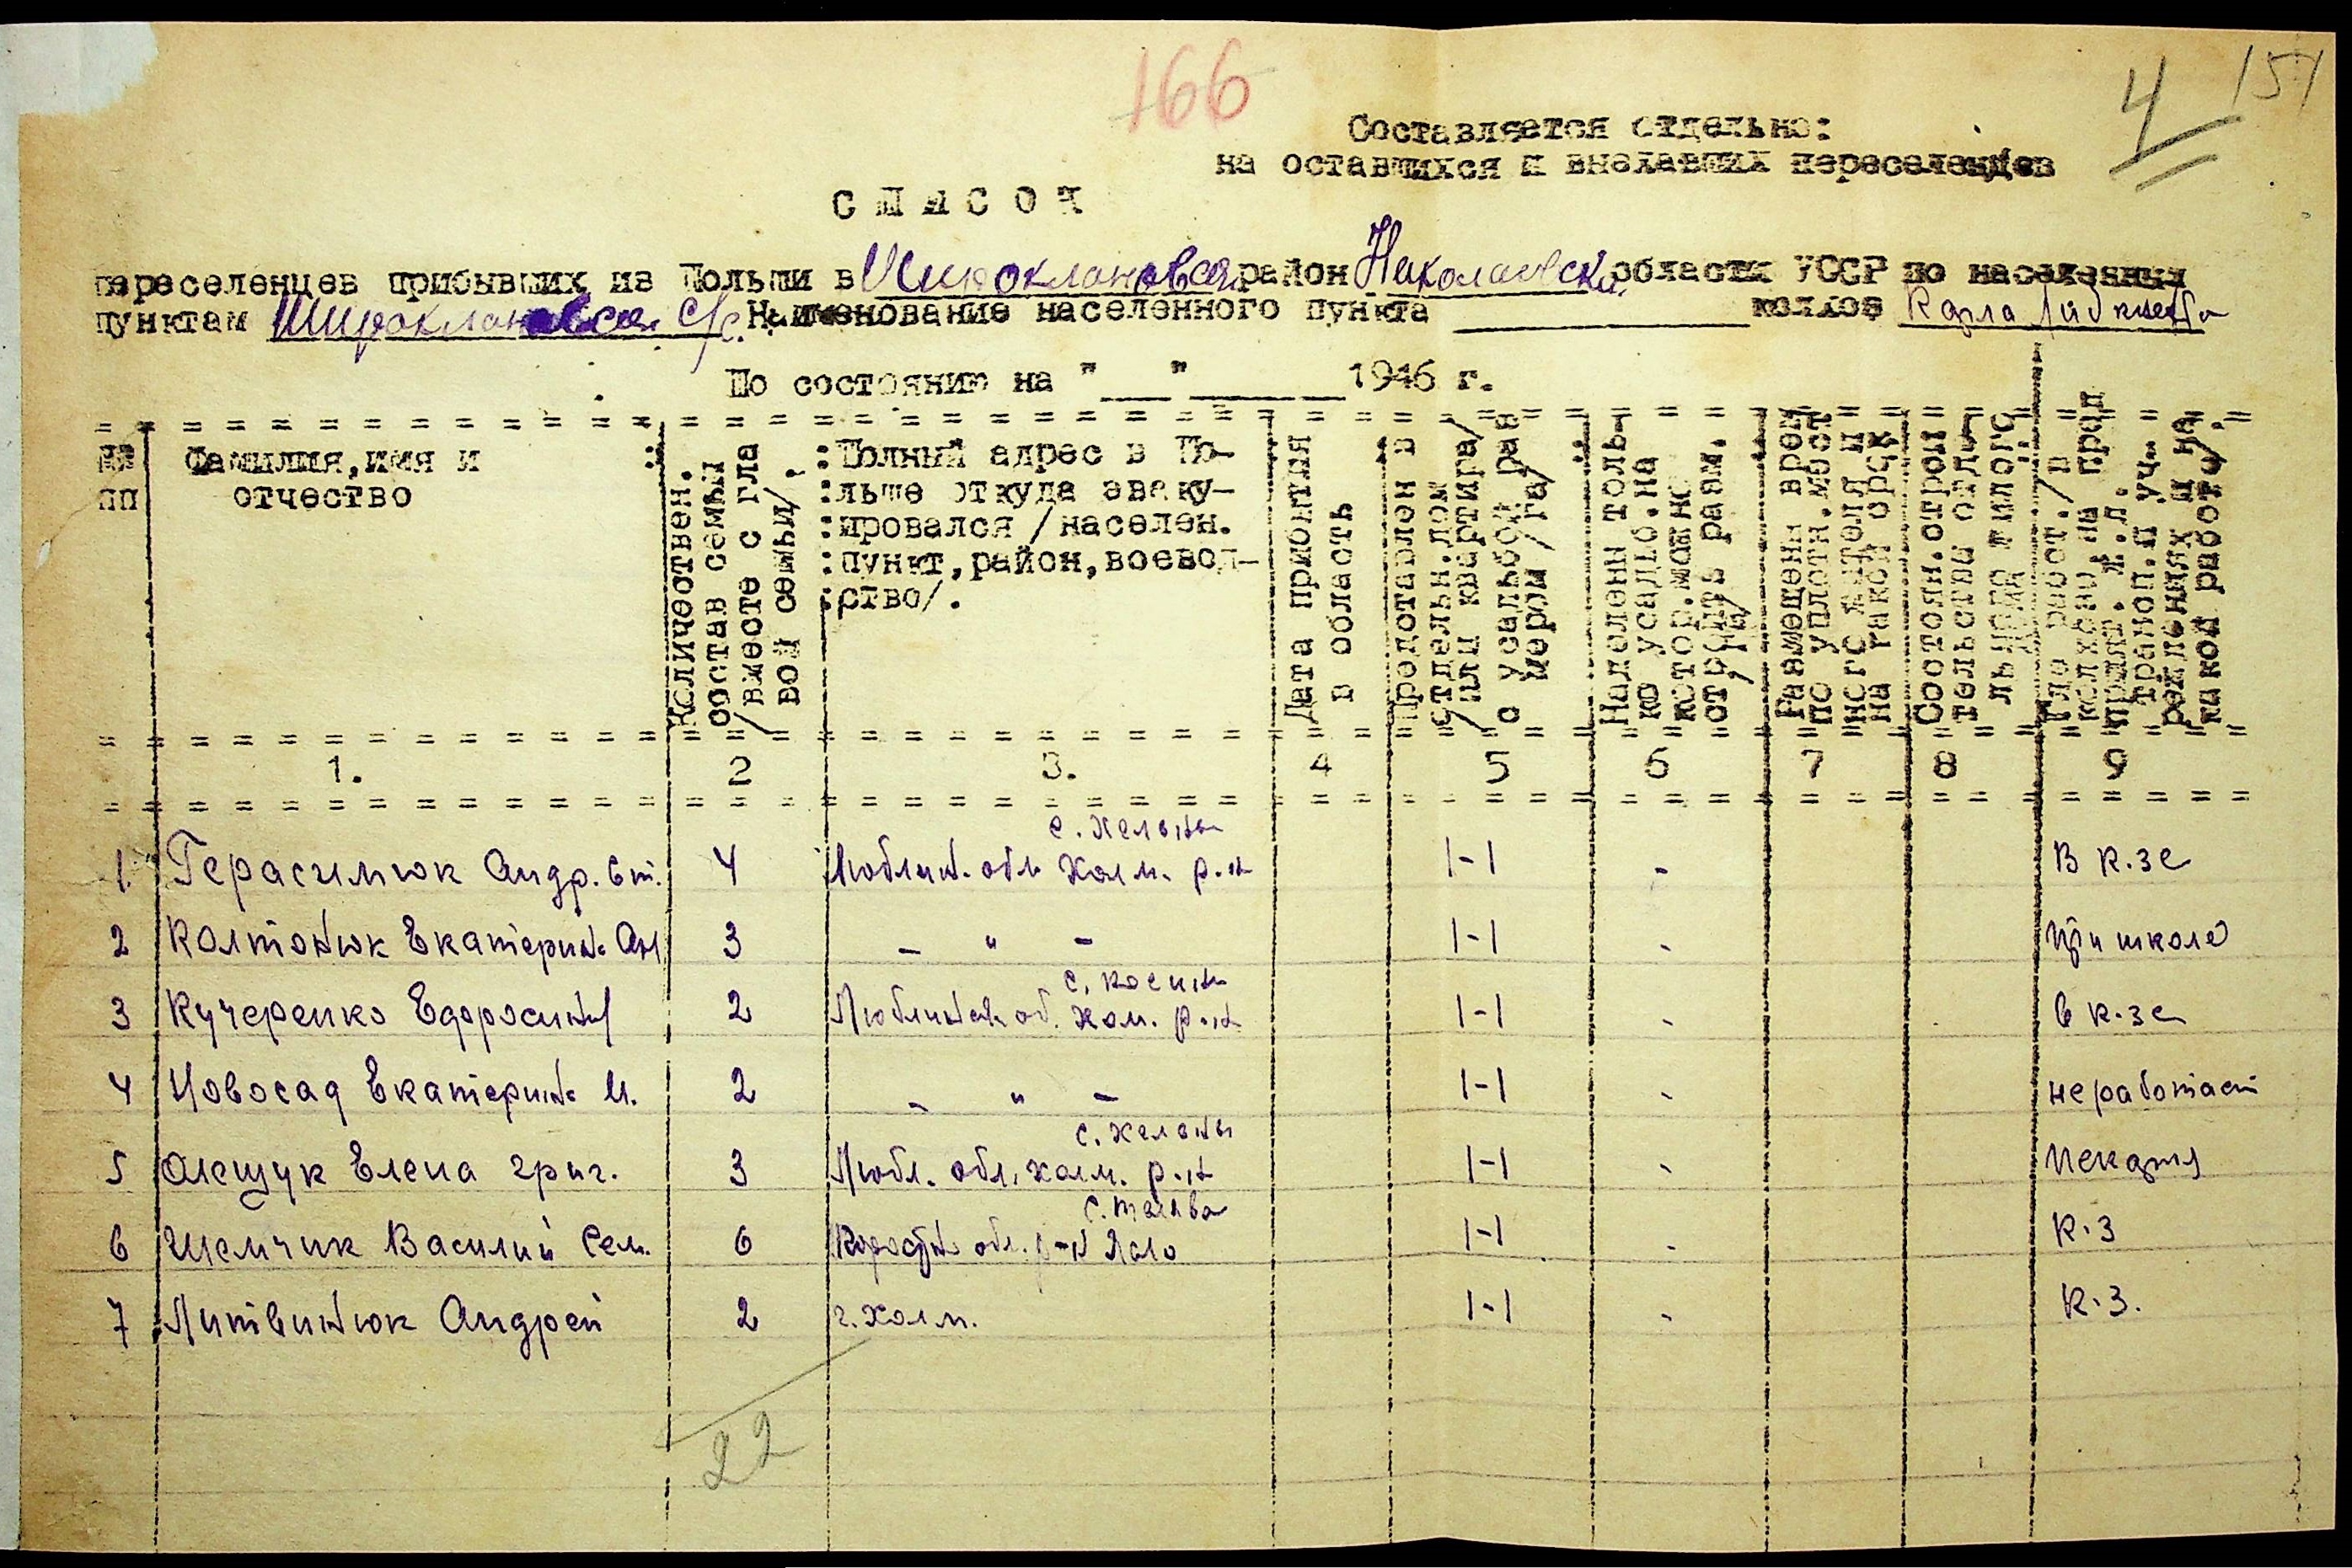 166
4
151
Составляется отдельно:
на оставшихся и внехавших переселенцев
СПИСОК
переселенцев прибывших из Польши в Широклановская район Николаевской области УССР по населенным
пунктам Широклановская с/с. Наименование населенного пункта колхоз Карла Либкнехта
По состоянию на " " 1946 г.
№№ пп
Фамилия, имя и
отчество
Количествен.
состав семьи
/вместе с гла
вой семьи/.
Полный адрес в По-
льше откуда эваку-
ировался /населен.
пункт, район, воевод-
ство/.
Дата прибытия
в область
Предоставлен в
отдельн. дом
/или квартира/
с усадьбой раз
мером /га/
Наделены толь-
ко усадьб. на
котор. можно
строить разм.
/га/
Размещены врем
по уплотн. мест
ного жителя и
на такой срок
Состоян. строи
тельства отде
льного жилого
Где работ. /в
колхозе, на пред
1. 2 3. 4 5 6 7 8 9
1 Герасимюк Андр. Ст. 4 с. Желоны Люблин. обл Холм. р.н 1-1 - в к.зе
2 Колтонюк Екатерина Ан 3 - " - 1-1 - при школе
3 Кучеренко Ефросиния 2 с. Косини Люблинск об. Хом. р.н 1-1 - в к.зе
4 Новосад Екатерина И. 2 - " - 1-1 - не работает
5 Олещук Елена Григ. 3 с. Желоны Любл. обл. Холм. р.н 1-1 - пекария
6 Шемчик Василий Сем. 6 обл. р-н 1-1 - к.з
7 Литвинюк Андрей 2 г. Холм. 1-1 - к.з.
22